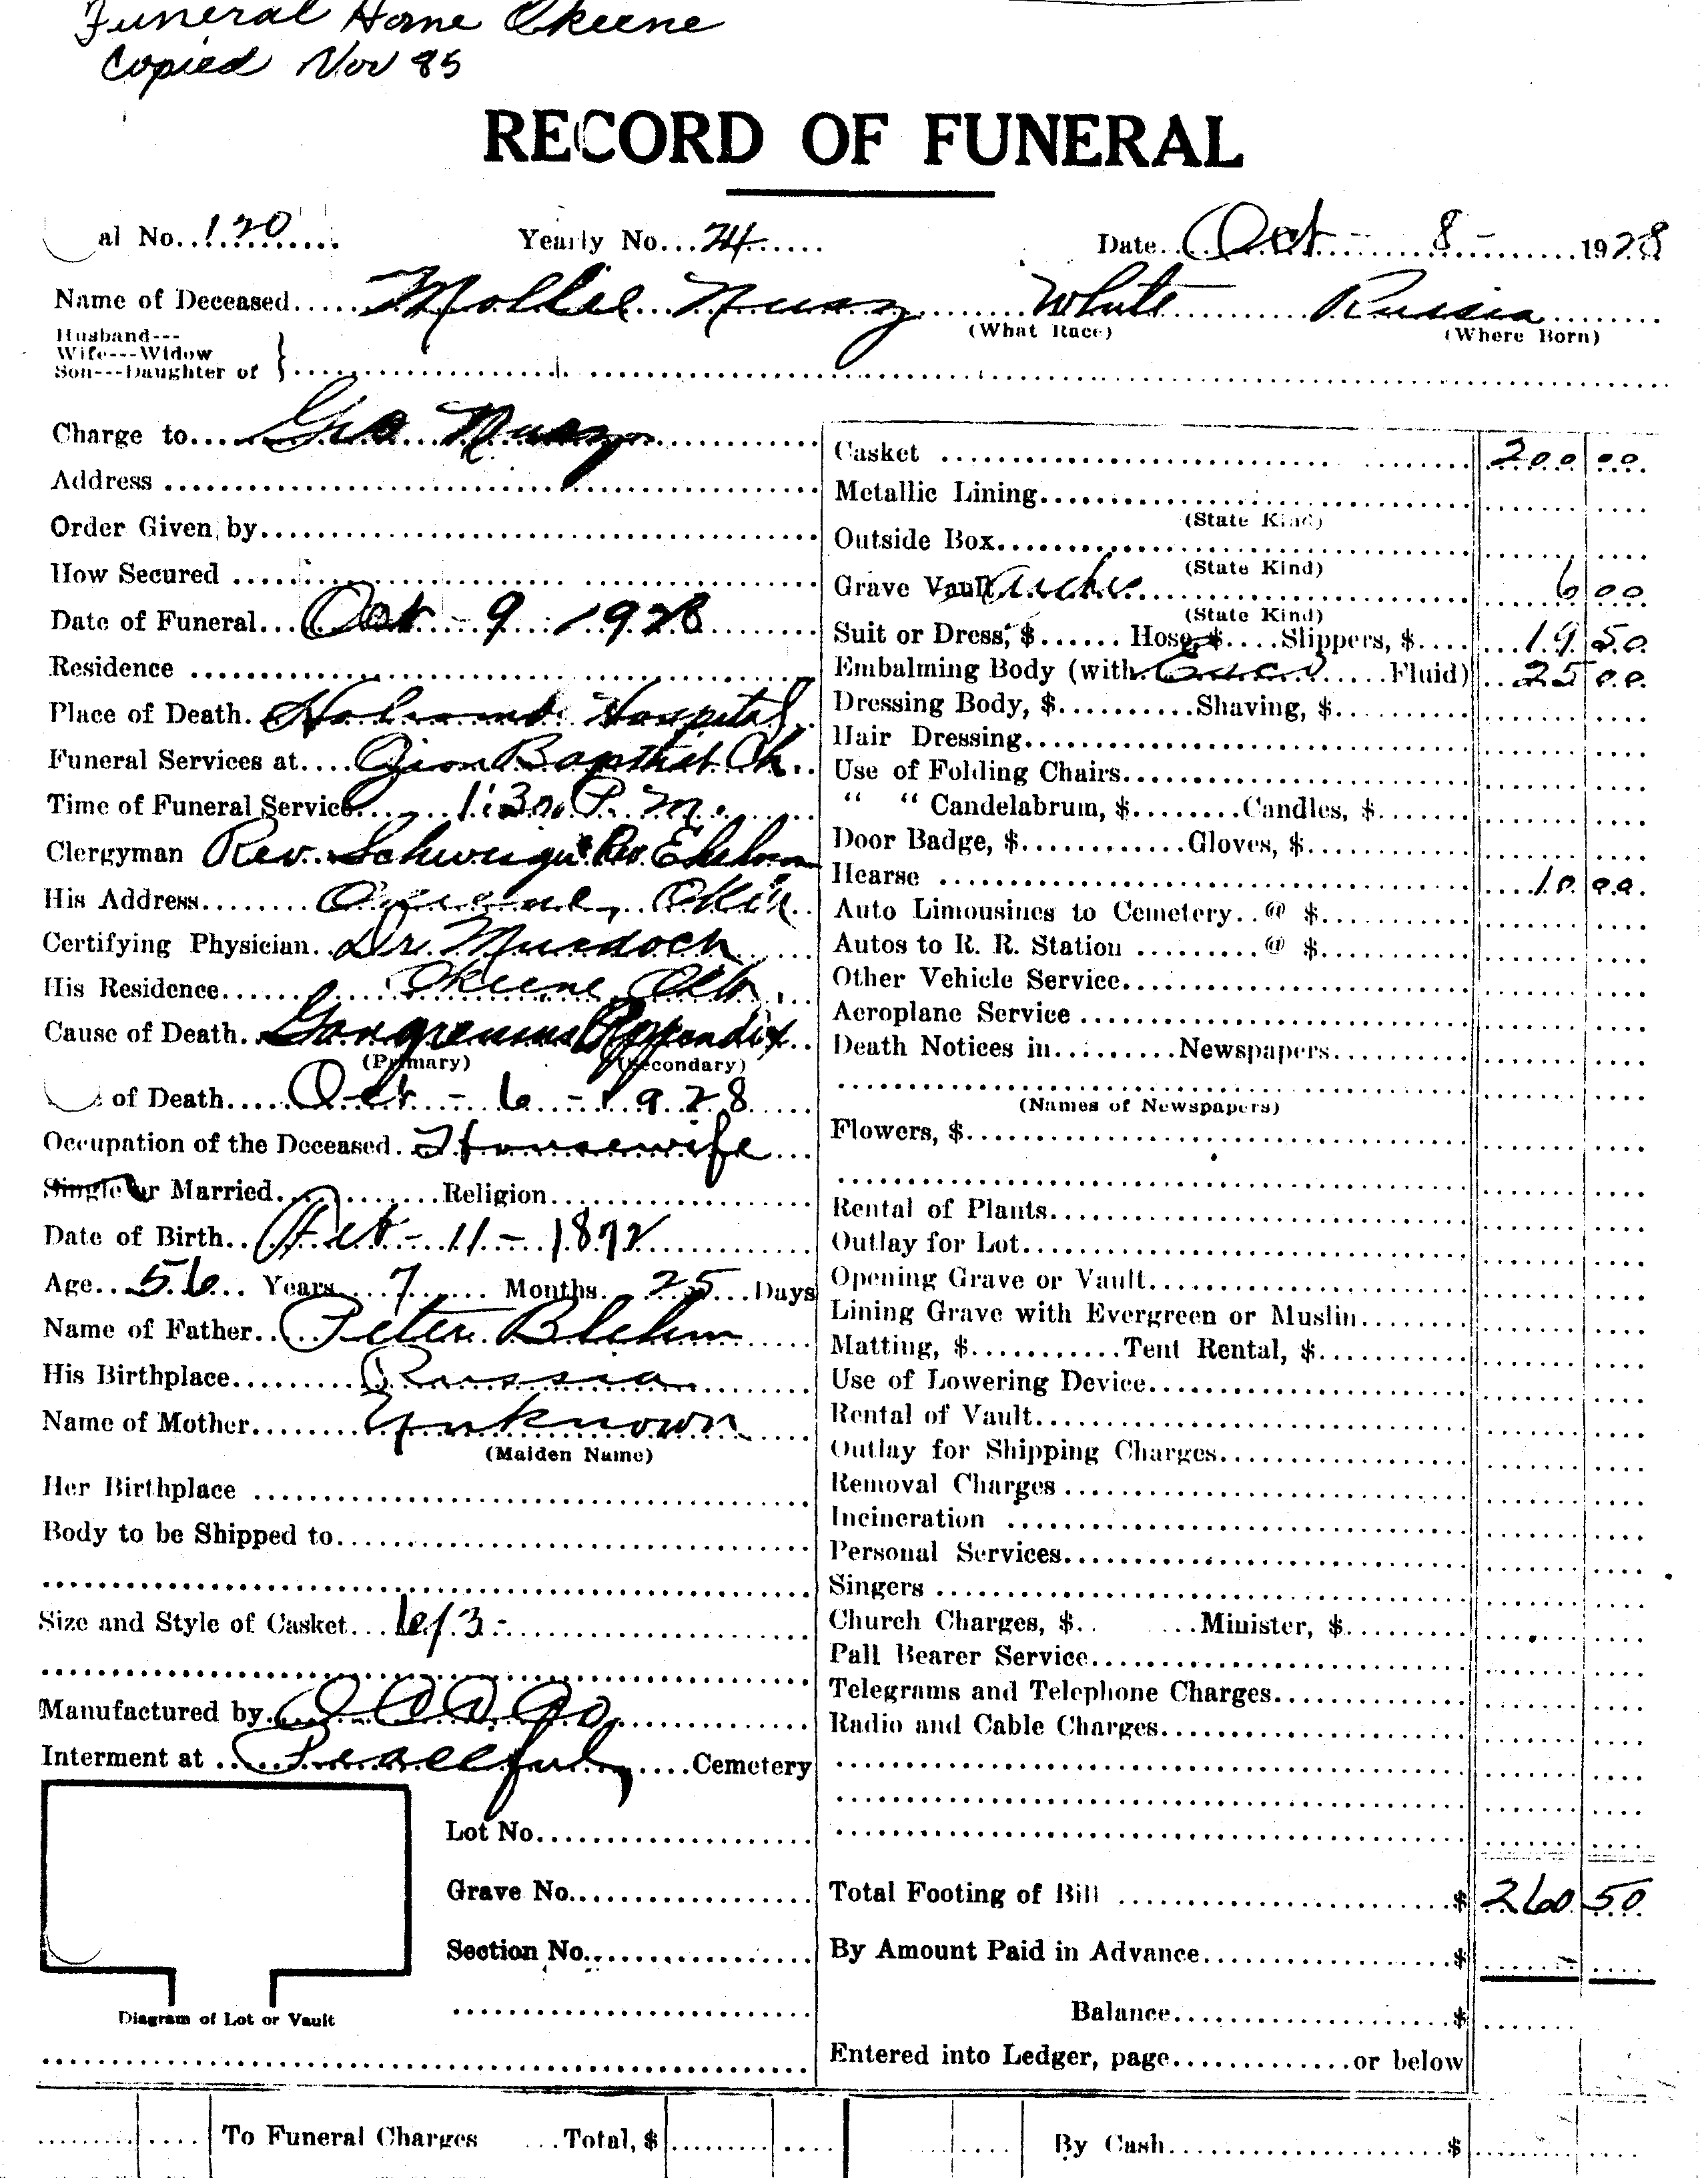 Funeral Home Okeene
Copied Nov 85
RECORD OF FUNERAL
al No. 120 Yearly No. 24 Date Oct - 8 - 1928
Name of Deceased Mollie White Russia
(What Race) (Where Born)
Husband---
Wife---Widow
Son---Daughter of
Charge to Geo
Address
Order Given by
How Secured
Date of Funeral Oct - 9 - 1928
Residence
Place of Death Hospital
Funeral Services at Zion Baptist Ch.
Time of Funeral Service 1:30 P. M.
Clergyman Rev. Rev.
His Address Okeene, Okla
Certifying Physician Dr. Murdoch
His Residence Okeene, Okla.
Cause of Death Gangrenous Appendix
(Primary) (Secondary)
of Death Oct - 6 - 1928
Occupation of the Deceased Housewife
Single or Married Religion
Date of Birth Feb - 11 - 1872
Age 56 Years 7 Months 25 Days
Name of Father Peter Blehm
His Birthplace Russia
Name of Mother Unknown
(Maiden Name)
Her Birthplace
Body to be Shipped to
Size and Style of Casket 6/3 -
Manufactured by Co.
Interment at Peaceful Cemetery
Lot No.
Grave No.
Section No.
Diagram of Lot or Vault
Casket 200 00
Metallic Lining
(State Kind)
Outside Box
(State Kind)
Grave Vault 6 00
(State Kind)
Suit or Dress, $ Hose, $ Slippers, $ 19 50
Embalming Body (with Fluid) 25 00
Dressing Body, $ Shaving, $
Hair Dressing
Use of Folding Chairs
" " Candelabrum, $ Candles, $
Door Badge, $ Gloves, $
Hearse 10 00
Auto Limousines to Cemetery @ $
Autos to R. R. Station @ $
Other Vehicle Service
Aeroplane Service
Death Notices in Newspapers
(Names of Newspapers)
Flowers, $
Rental of Plants
Outlay for Lot
Opening Grave or Vault
Lining Grave with Evergreen or Muslin
Matting, $ Tent Rental, $
Use of Lowering Device
Rental of Vault
Outlay for Shipping Charges
Removal Charges
Incineration
Personal Services
Singers
Church Charges, $ Minister, $
Pall Bearer Service
Telegrams and Telephone Charges
Radio and Cable Charges
Total Footing of Bill $ 260 50
By Amount Paid in Advance $
Balance $
Entered into Ledger, page or below
To Funeral Charges Total, $ By Cash $